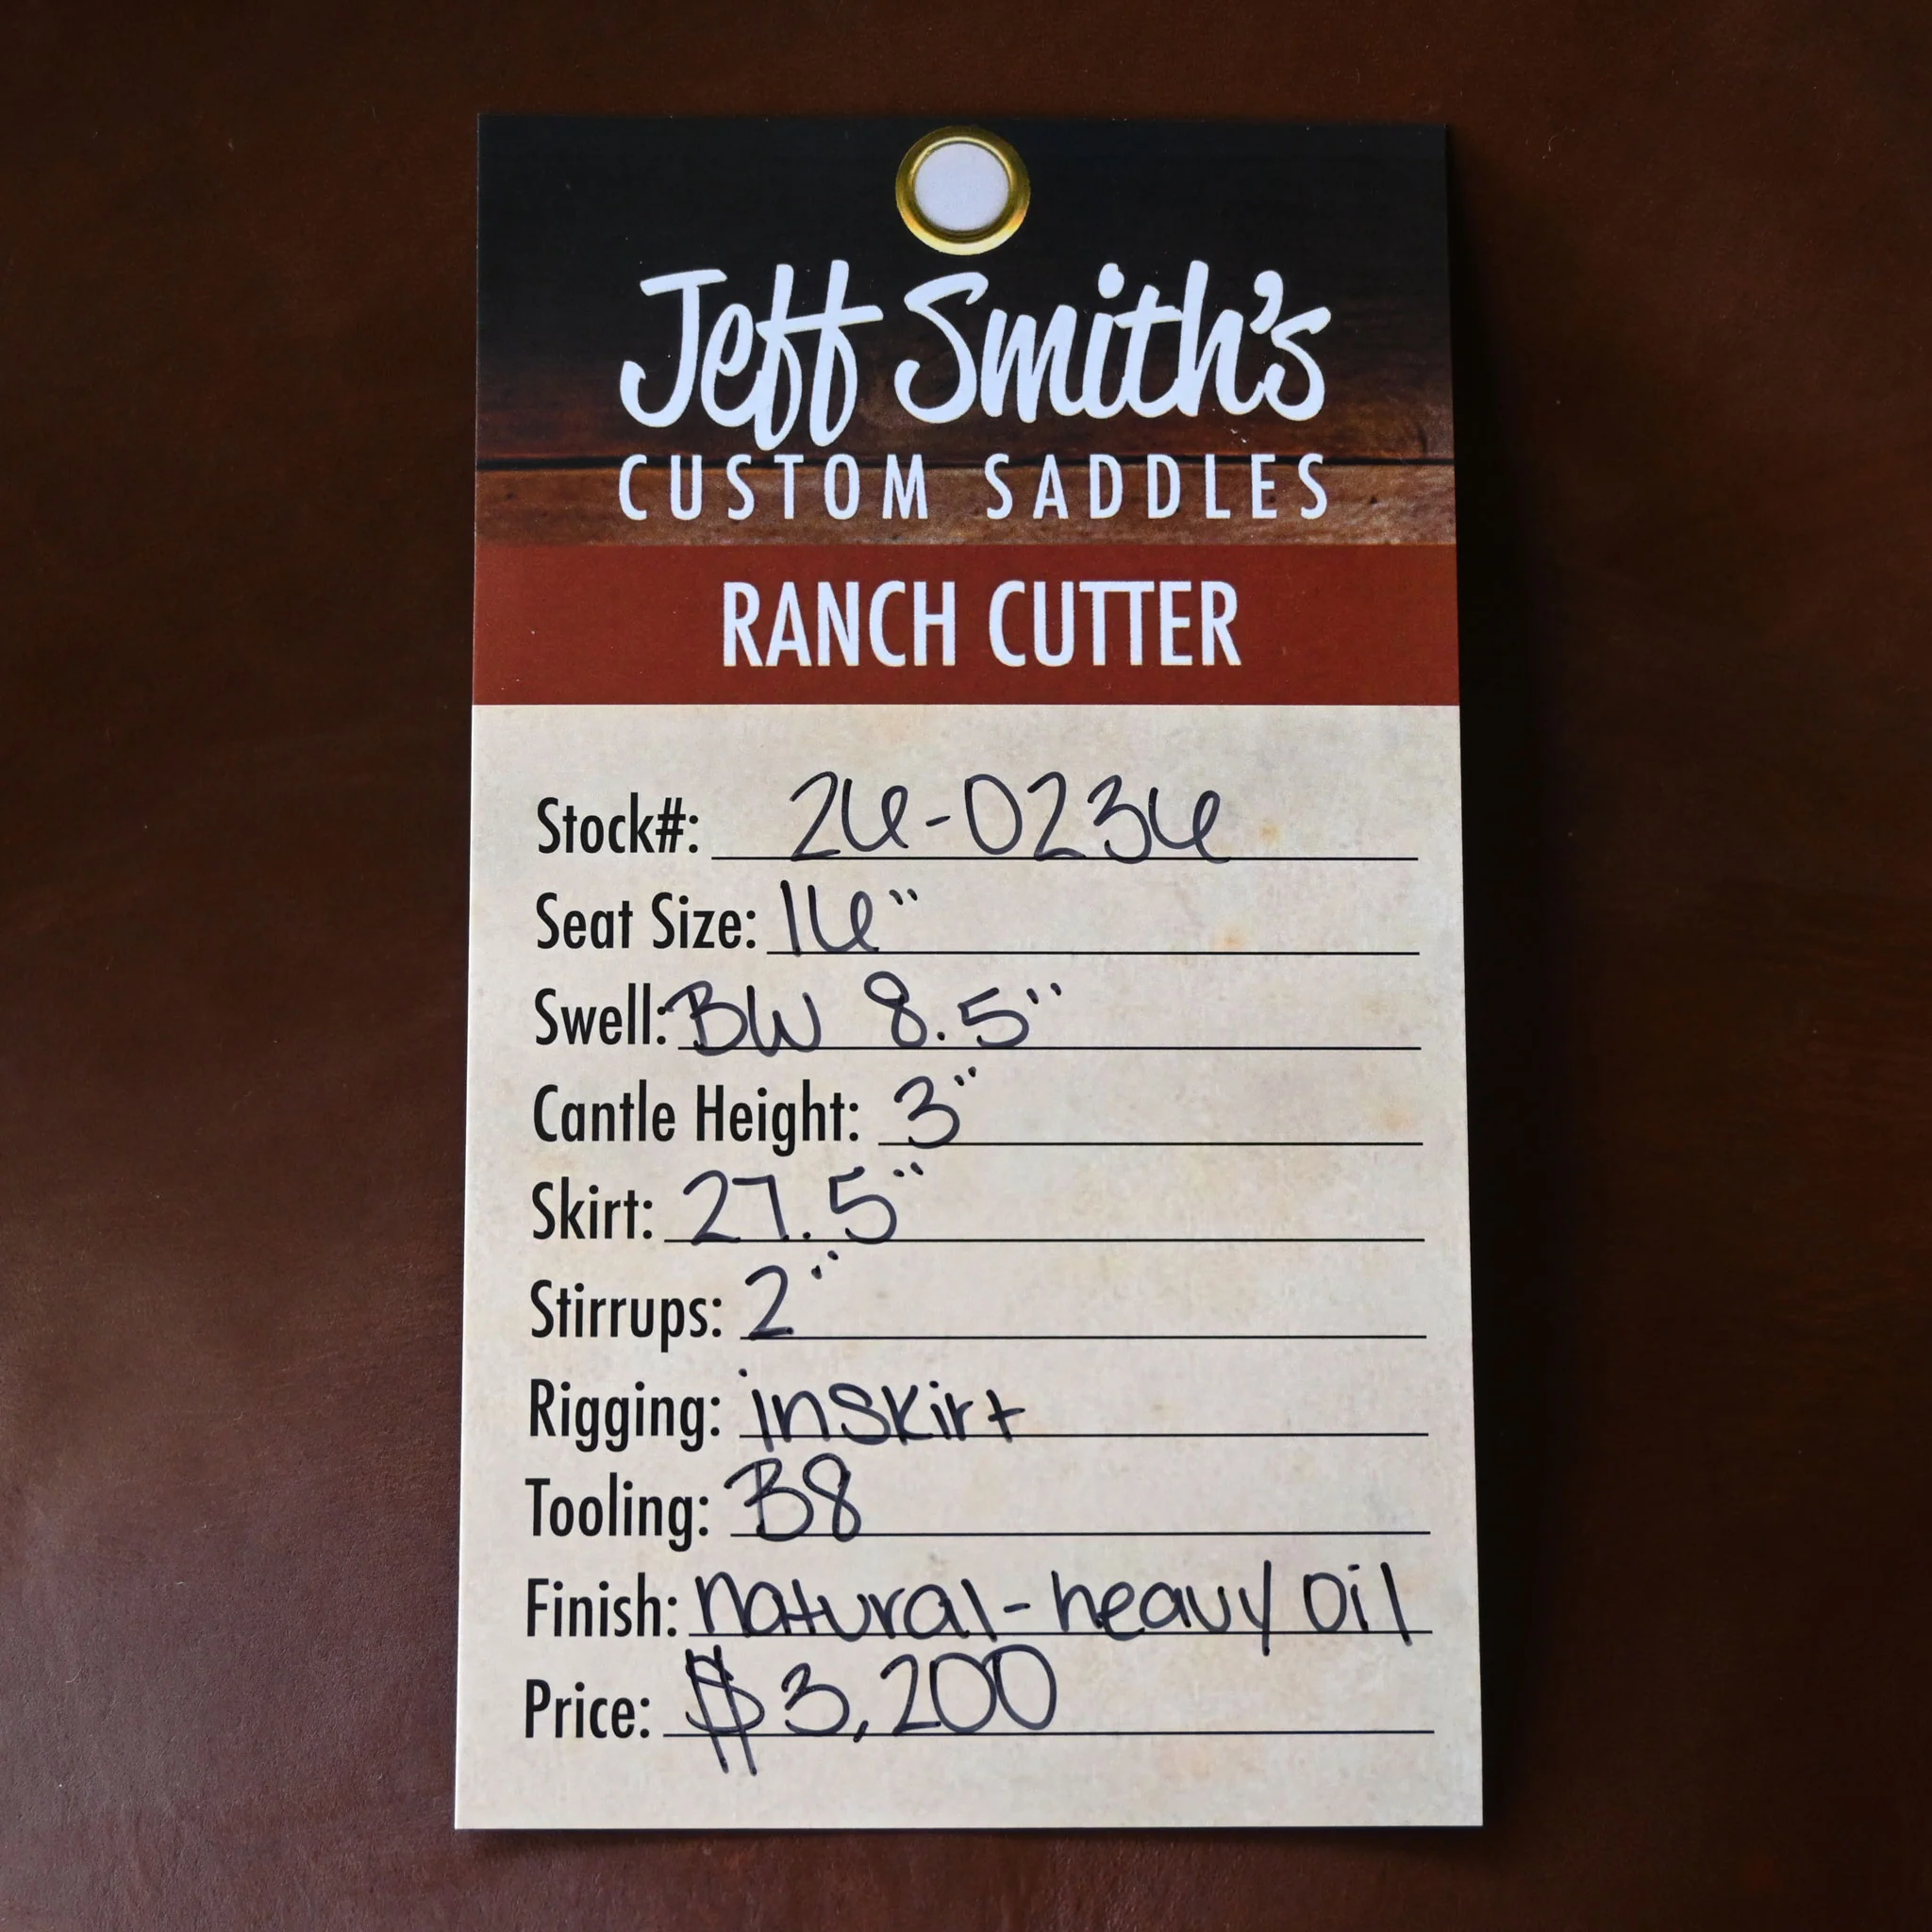 Jeff Smith's
CUSTOM SADDLES
RANCH CUTTER
Stock#: 26-0236
Seat Size: 16"
Swell: BW 8.5"
Cantle Height: 3"
Skirt: 27.5"
Stirrups: 2"
Rigging: inskirt
Tooling: B8
Finish: natural-heavy oil
Price: $3,200